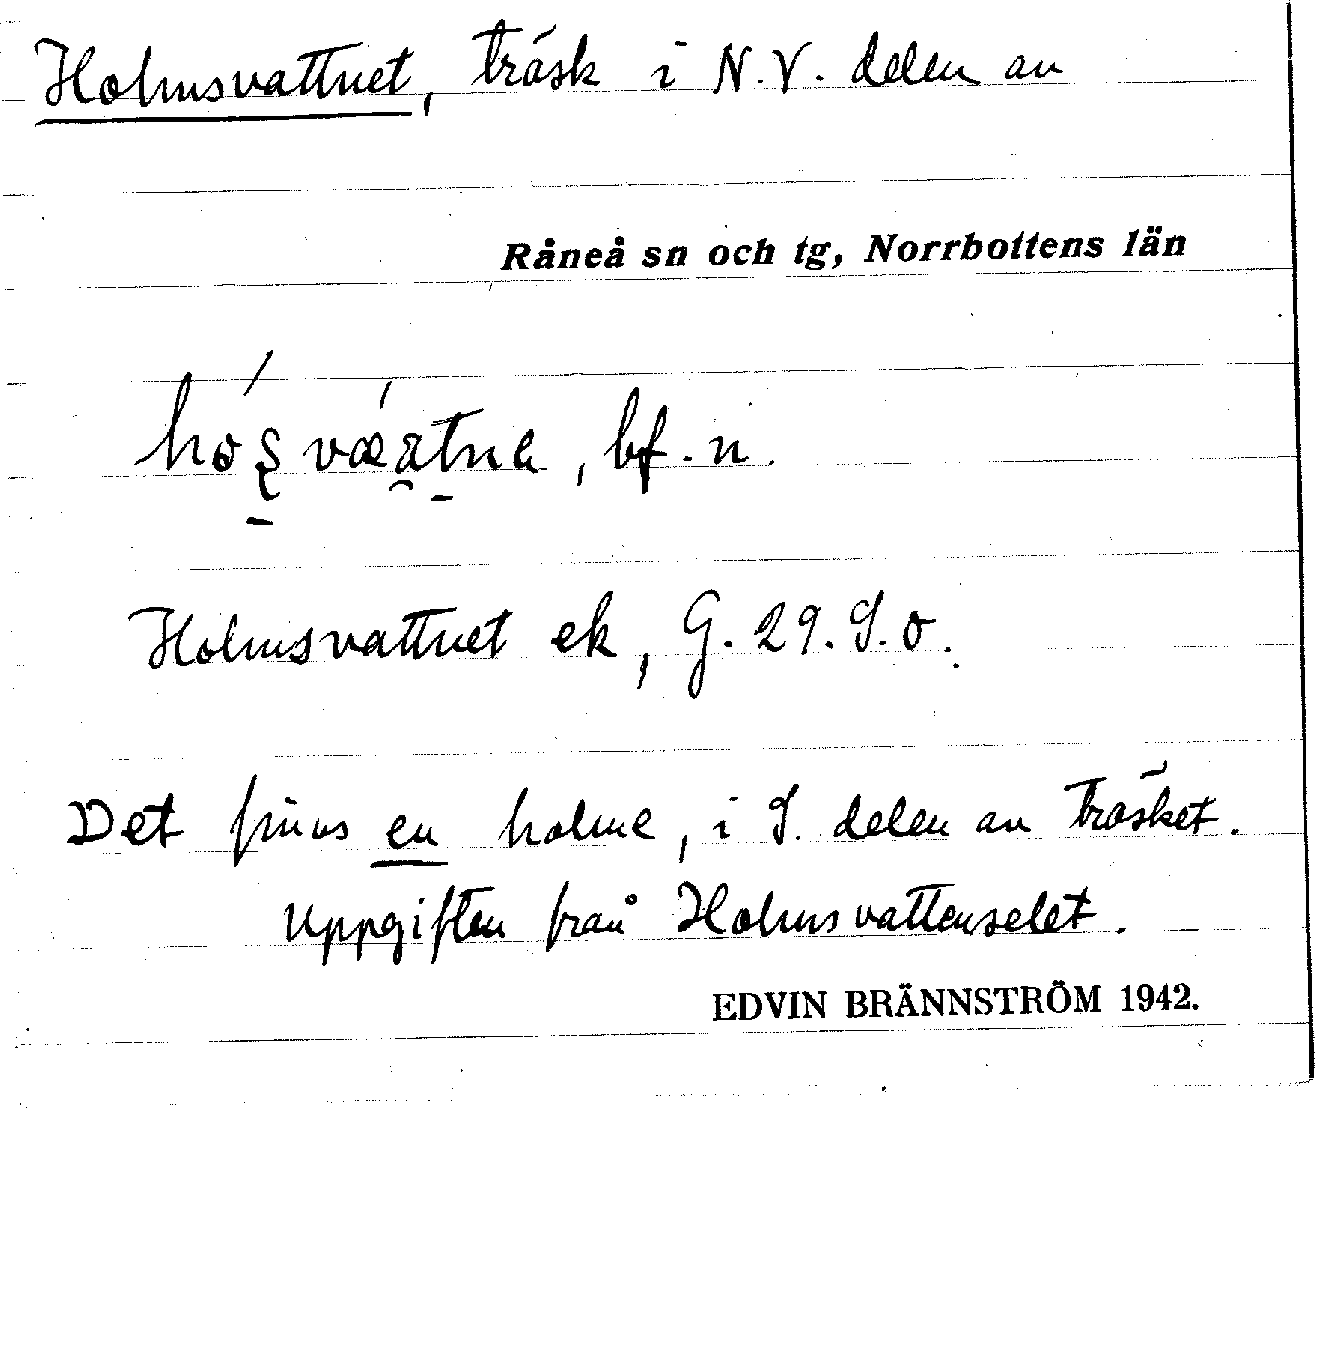 Holmsvattnet, träsk i N.V. delen av
Råneå sn och tg, Norrbottens län
bf. n.
Holmsvattnet ek, G. 29. S. o.
Det finns en holme, i S. delen av träsket.
Uppgiften från Holmsvattenselet.
EDVIN BRÄNNSTRÖM 1942.